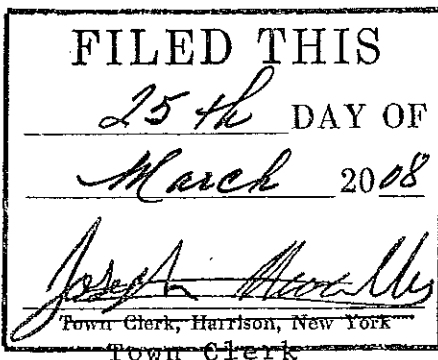 FILED THIS
25th DAY OF
March 2008
Joseph
Town Clerk, Harrison, New York
Town Clerk